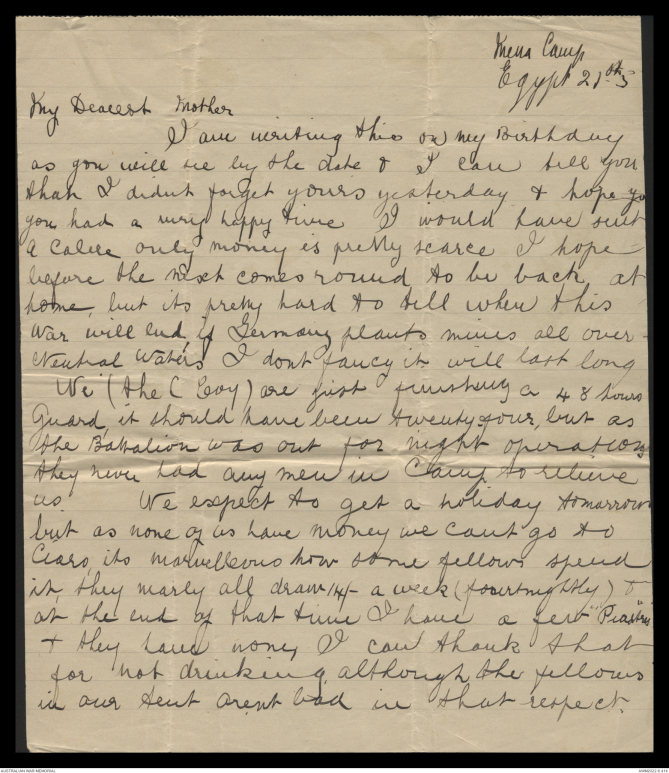 Mena Camp
Egypt 21st
My Dearest Mother
I am writing this on my Birthday
as you will see by the date & I can tell you
that I didn't forget yours yesterday & hope
you had a very happy time I would have sent
a cable only money is pretty scarce I hope
before the next comes round to be back at
home, but its pretty hard to tell when this
War will end, if Germany plants mines all over
Neutral Waters I dont fancy it will last long
We (the C Coy) are just finishing a 48 hours
Guard, it should have been twentyfour, but as
the Batalion was out for night operations
they never had any men in Camp to relieve
us. We expect to get a holiday tomarrow
but as none of us have money we cant go to
Ciaro, its marvelleous how some fellows spend
it, they nearly all draw 14/- a week (fourtnightly) &
at the end of that time I have a few "Piastres"
& they have none, I can thank that
for not drinking, although the fellows
in our tent arent bad in that respect.
AUSTRALIAN WAR MEMORIAL